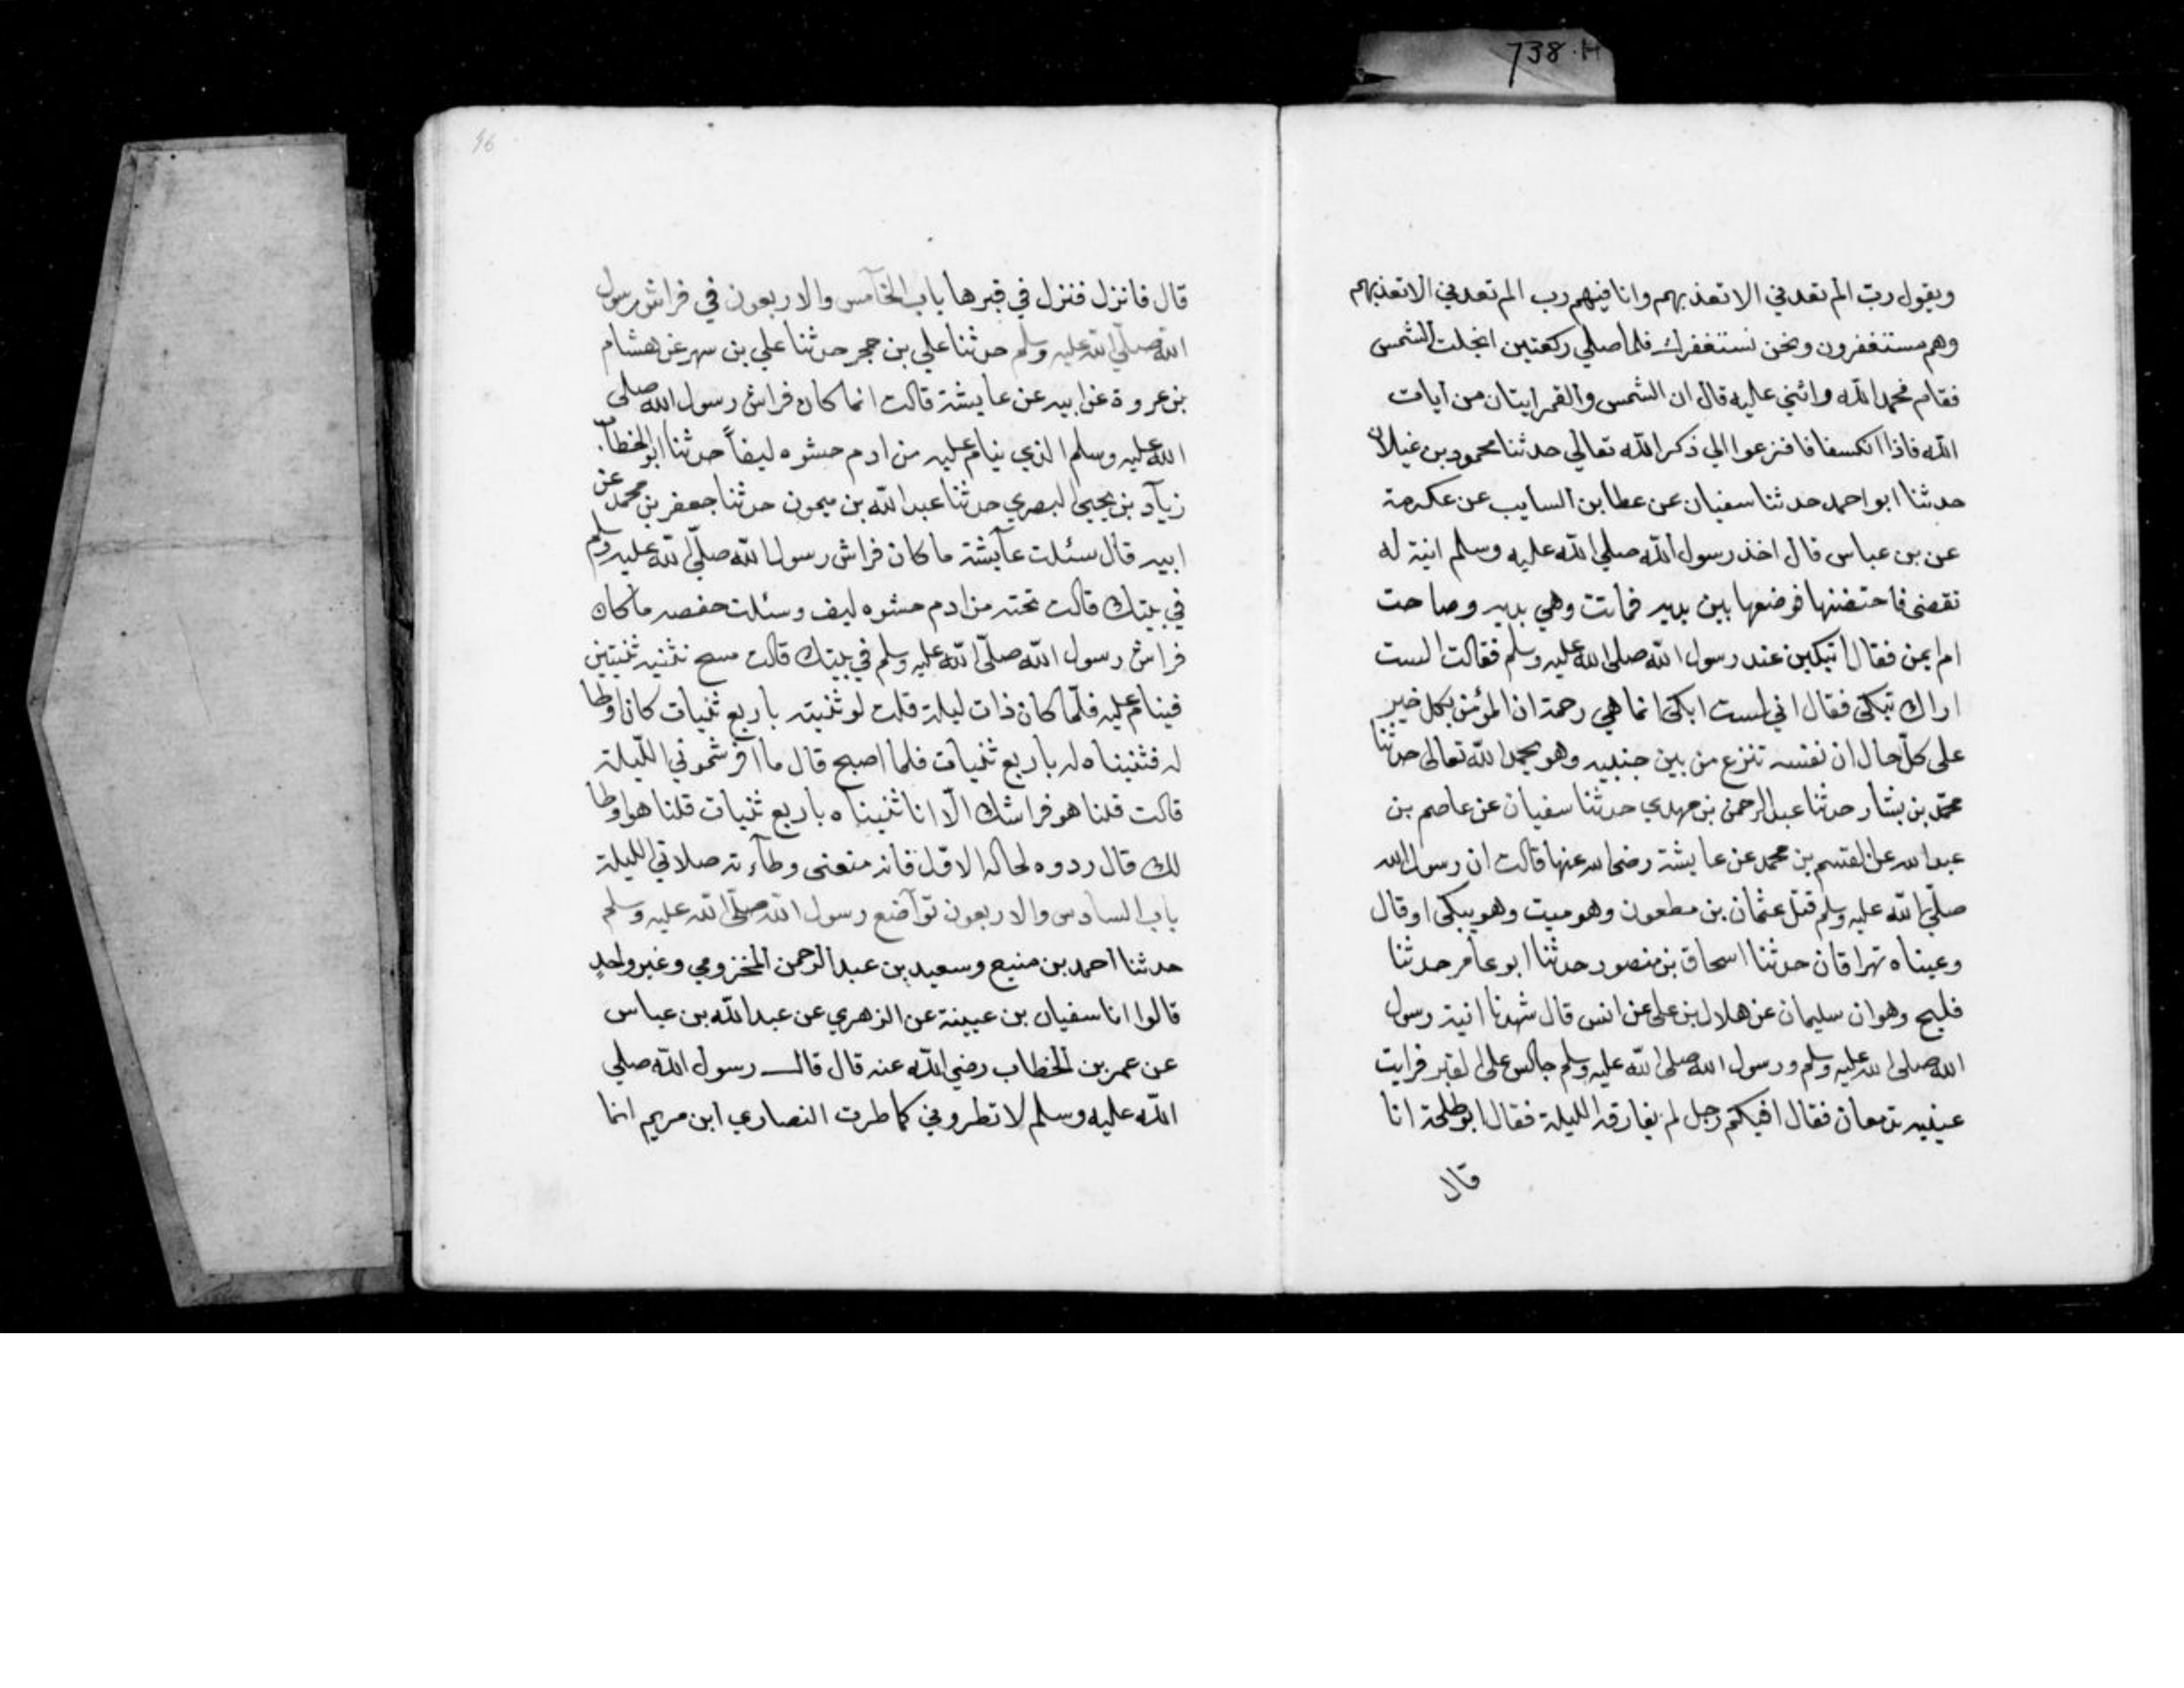 738.H
ويقول رب الم تعدني الا تعذبهم وانا فيهم رب الم تعدني الا تعذبهم
وهم مستغفرون ونحن نستغفرك فلما صلي ركعتين انجلت الشمس
فقام محمد الله واثني عليه قال ان الشمس والقمر ايتان من ايات
الله فاذا انكسفا فافزعوا الي ذكر الله تعالي حدثنا محمود بن غيلان
حدثنا ابو احمد حدثنا سفيان عن عطا بن السايب عن عكرمة
عن بن عباس قال اخذ رسول الله صلي الله عليه وسلم ابنة له
تقضى فاحتضنها فوضعها بين يديه فماتت وهي بديه وصاحت
ام ايمن فقال اتبكين عند رسول الله صلى الله عليه وسلم فقالت الست
اراك تبكى فقال اني لست ابكى انما هي رحمة ان المؤمن بكل خير
على كل حال ان نفسه تنزع من بين جنبيه وهو يحمد الله تعالى حدثنا
محمد بن بشار حدثنا عبد الرحمن بن مهدي حدثنا سفيان عن عاصم بن
عبد الله عن القسم بن محمد عن عايشة رضى الله عنها قالت ان رسول الله
صلى الله عليه وسلم قبل عثمان بن مطعون وهو ميت وهو يبكى او قال
وعيناه تهراقان حدثنا اسحاق بن منصور حدثنا ابو عامر حدثنا
فليح وهو ان سليمان عن هلال بن على عن انس قال شهدنا ابنة رسول
الله صلى الله عليه وسلم ورسول الله صلى الله عليه وسلم جالس على القبر فرايت
عينيه تدمعان فقال افيكم رجل لم يفارق الليلة فقال ابو طلحة انا
قال
46
قال فانزل فنزل في قبرها باب الخامس والاربعون في فراش رسول
الله صلي الله عليه وسلم حدثنا علي بن حجر حدثنا علي بن سهر عن هشام
بن عروة عن ابيه عن عايشة قالت انما كان فراش رسول الله صلى
الله عليه وسلم الذي ينام عليه من ادم حشوه ليفاً حدثنا ابو الخطاب
زياد بن يحيي البصري حدثنا عبد الله بن ميمون حدثنا جعفر بن محمد عن
ابيه قال سئلت عآيشة ما كان فراش رسول الله صلّى الله عليه وسلم
في بيتك قالت تحته من ادم حشوه ليف وسئلت حفصه ما كان
فراش رسول الله صلّى الله عليه وسلم في بيتك قالت مسح نثنيه ثنيتين
فينام عليه فلمّا كان ذات ليلة قلت لو ثنيته باربع ثنيات كان اوطا
له فثنيناه له باربع ثنيات فلما اصبح قال ما افرشموني اللّيلة
قالت قلنا هو فراشك الّا انا ثنيناه باربع ثنيات قلنا هو اوطا
لك قال ردوه لحاله الاوّل فانه منعنى وطآءته صلاتي الليلة
باب السادس والاربعون توآضع رسول الله صلّى الله عليه وسلم
حدثنا احمد بن منيع وسعيد بن عبد الرحمن المخزومي وغير واحدٍ
قالوا انا سفيان بن عيينة عن الزهري عن عبد الله بن عباس
عن عمر بن الخطاب رضي الله عنه قال قال رسول الله صلي
الله عليه وسلم لا تطروني كما طرت النصاري ابن مريم انما